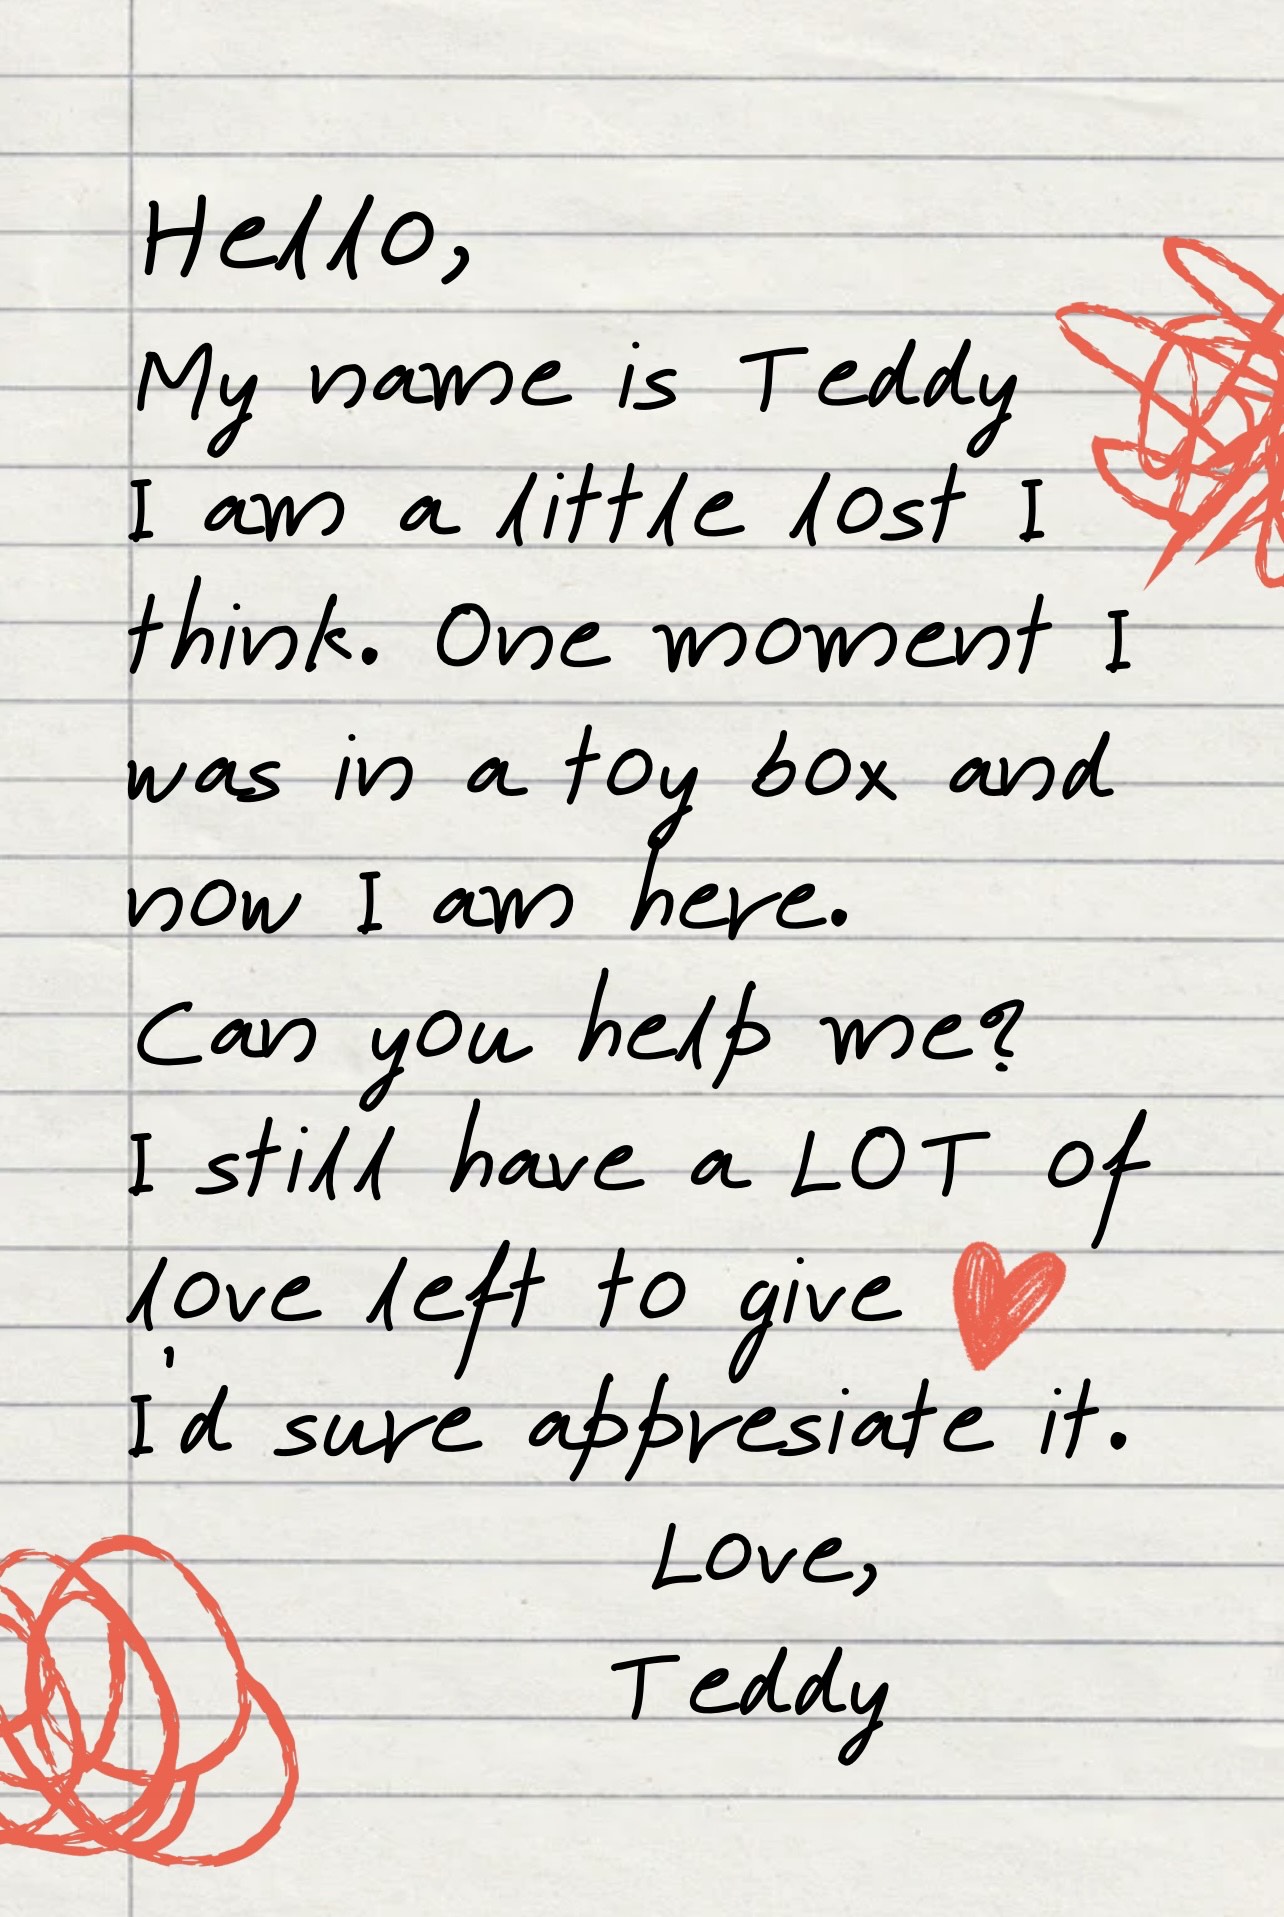 Hello,
My name is Teddy
I am a little lost I
think. One moment I
was in a toy box and
now I am here.
Can you help me?
I still have a LOT of
love left to give
I'd sure appresiate it.
Love,
Teddy